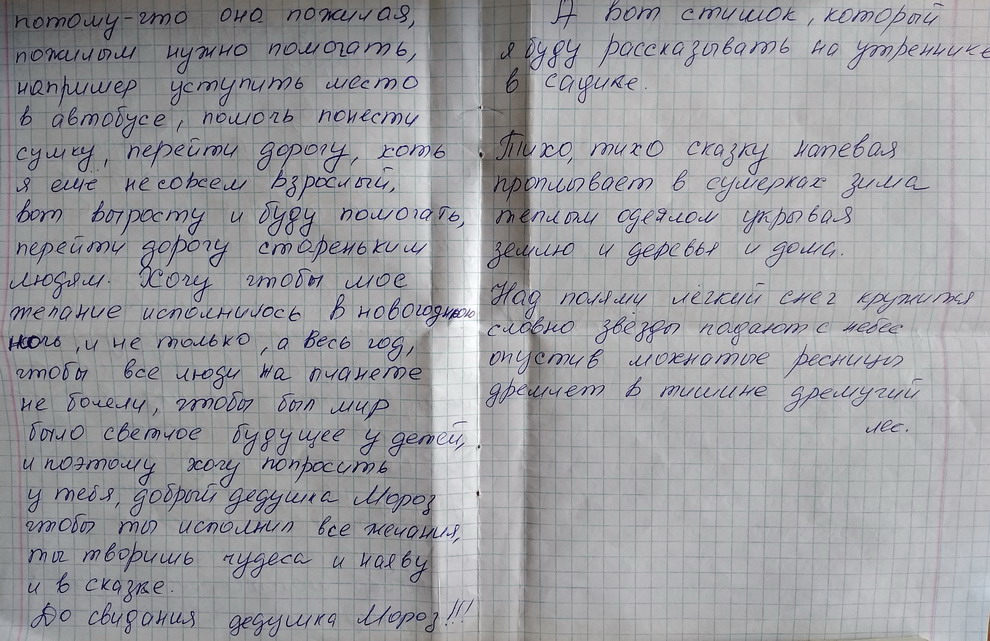 потому-что она пожилая,
пожилым нужно помогать,
например уступить место
в автобусе, помочь понести
сумку, перейти дорогу, хоть
я ещё несовсем взрослый,
вот выросту и буду помогать,
перейти дорогу стареньким
людям. Хочу чтобы мое
желание исполнилось в новогоднюю
ночь, и не только, а весь год,
чтобы все люди на планете
не болели, чтобы был мир
было светлое будущее у детей,
и поэтому хочу попросить
у тебя, добрый дедушка Мороз
чтобы ты исполнил все желания,
ты творишь чудеса и наяву
и в сказке.
До свидания дедушка Мороз!!!
А вот стишок, который
я буду рассказывать на утреннике
в садике.
Тихо, тихо сказку напевая
проплывает в сумерках зима
теплым одеялом укрывая
землю и деревья и дома.
Над полями лёгкий снег кружится
словно звёзды падают с небес
опустив мохнатые ресницы
дремлет в тишине дремучий
лес.